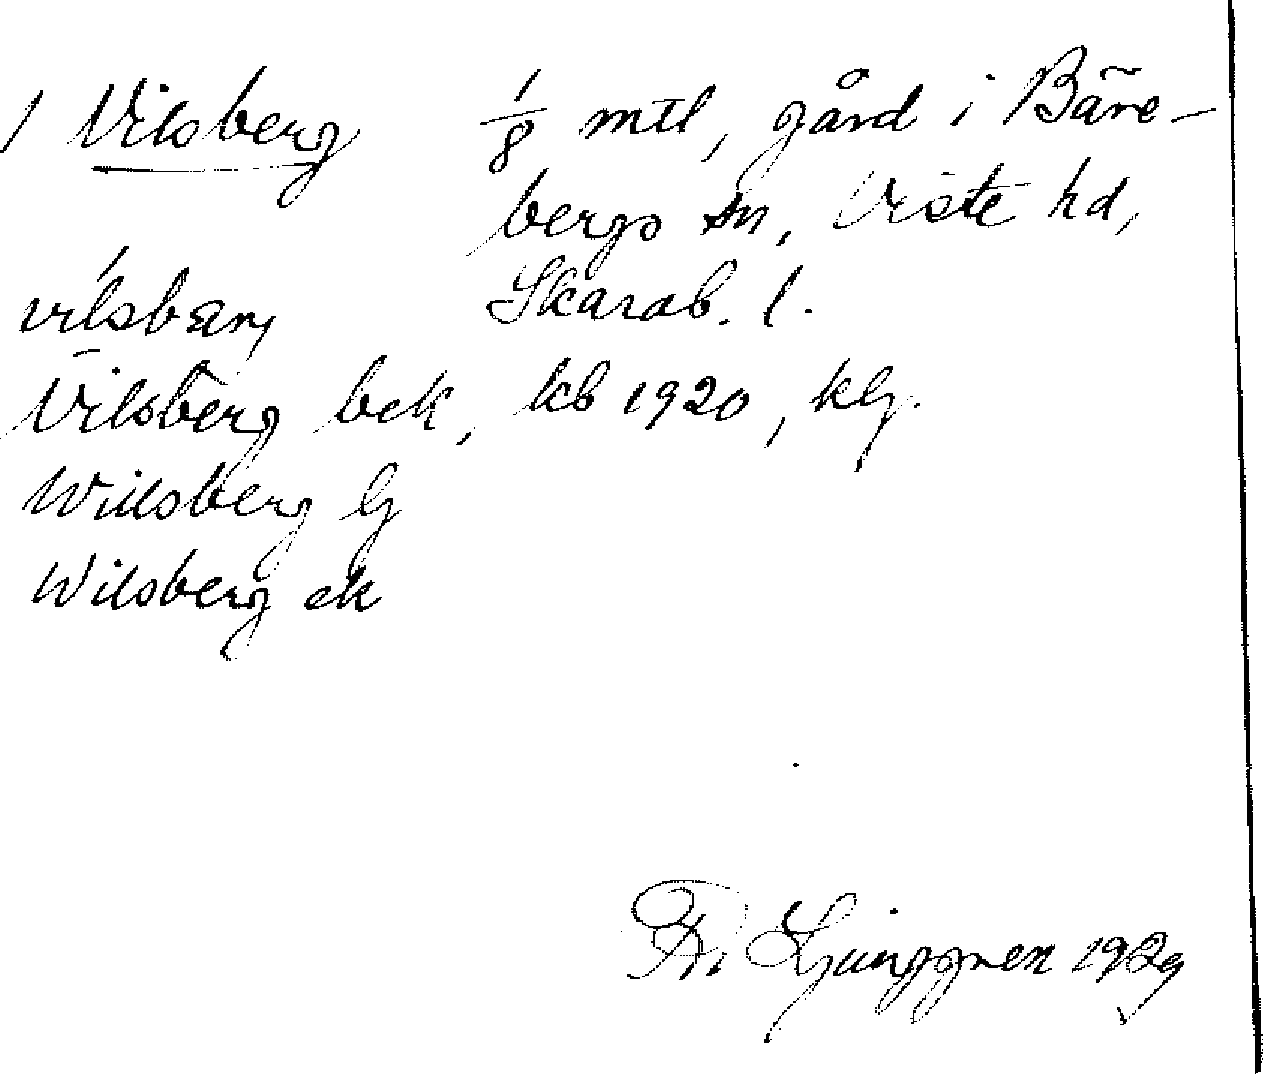 1 Vilsberg 1/8 mtl, gård i Bäre-
bergs sn, Viste hd,
vilsbærj Skarab. l.
Vilsberg bek, kb 1920, klg.
Willsberg lj
Wilsberg ek
Fr. Ljunggren 1929